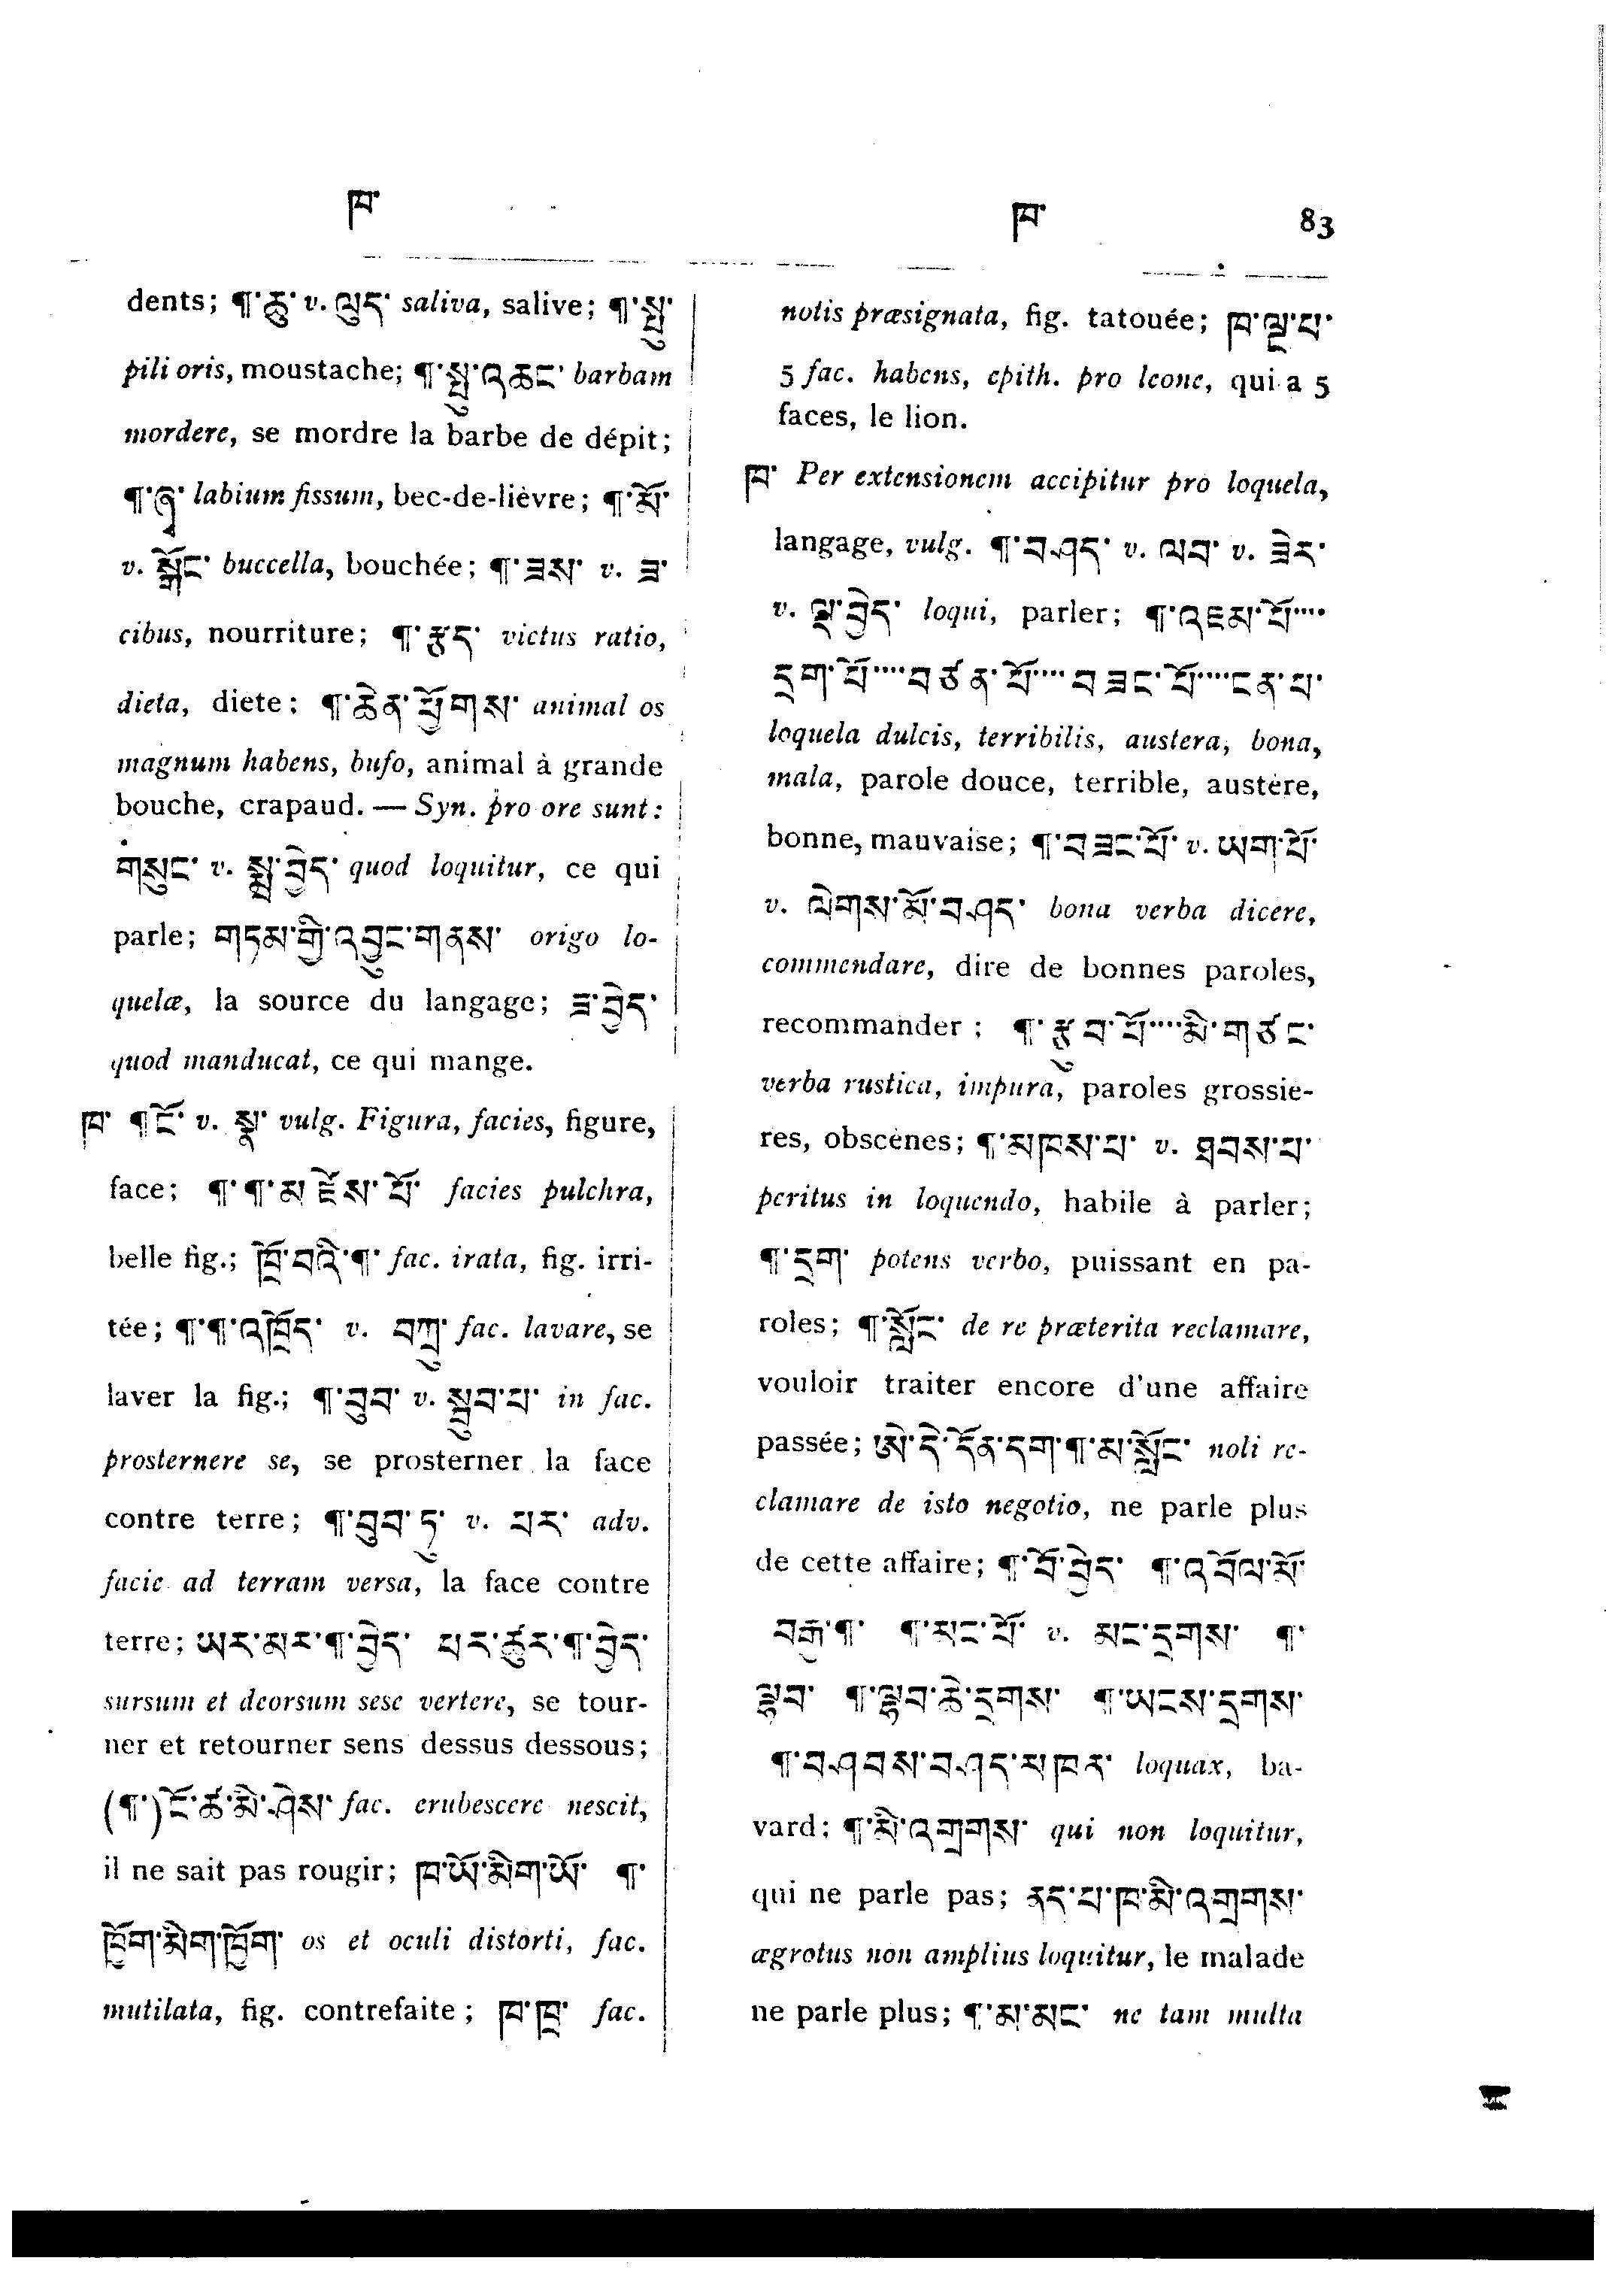 ཁ་
ཁ་ 83
dents; ¶་ཆུ་ v. ལུད་ saliva, salive; ¶་སྤུ་
pili oris, moustache; ¶་སྤུ་འཆང་ barbam
mordere, se mordre la barbe de dépit;
¶་ labium fissum, bec-de-lièvre; ¶་མོ་
v. buccella, bouchée; ¶་ཟས་ v. ཟ་
cibus, nourriture; ¶་ victus ratio,
dieta, diete; ¶་ཆེན་ཕྱོགས་ animal os
magnum habens, bufo, animal à grande
bouche, crapaud. — Syn. pro ore sunt:
གསུང་ v. སྨྲ་བྱེད་ quod loquitur, ce qui
parle; གདམ་གྱི་འབྱུང་གནས་ origo lo-
quelæ, la source du langage; ཟ་བྱེད་
quod manducat, ce qui mange.
ཁ་ ¶ངོ་ v. སྣ་ vulg. Figura, facies, figure,
face; ¶་¶་མཛེས་པོ་ facies pulchra,
belle fig.; ཁྲོ་བའི་¶་ fac. irata, fig. irri-
tée; ¶་¶་འཁྲོད་ v. བཀྲུ་ fac. lavare, se
laver la fig.; ¶་བུབ་ v. སྦུབ་པ་ in fac.
prosternere se, se prosterner la face
contre terre; ¶་བུབ་ཏུ་ v. པར་ adv.
facie ad terram versa, la face contre
terre; ཡར་མར་¶་བྱེད་ པར་ཚུར་¶་བྱེད་
sursum et deorsum sese vertere, se tour-
ner et retourner sens dessus dessous;
(¶་)ངོ་ཚ་མི་ཤེས་ fac. erubescere nescit,
il ne sait pas rougir; ཁ་ཡོ་མིག་ཡོ་ ¶་
ཁྱོག་མིག་ཁྱོག་ os et oculi distorti, fac.
mutilata, fig. contrefaite; ཁ་ཁྲ་ fac.
notis præsignata, fig. tatouée; ཁ་ལྔ་པ་
5 fac. habens, epith. pro leone, qui a 5
faces, le lion.
ཁ་ Per extensionem accipitur pro loquela,
langage, vulg. ¶་བཤད་ v. ལབ་ v. ཟེར་
v. ལྡ་བྱེད་ loqui, parler; ¶་འཇམ་པོ་····
དྲག་པོ་····བཙན་པོ་····བཟང་པོ་····ངན་པ་
loquela dulcis, terribilis, austera, bona,
mala, parole douce, terrible, austère,
bonne, mauvaise; ¶་བཟང་པོ་ v. ཡག་པོ་
v. ལེགས་མོ་བཤད་ bona verba dicere,
commendare, dire de bonnes paroles,
recommander; ¶་རྩུབ་པོ་····མི་གཙང་
verba rustica, impura, paroles grossiè-
res, obscènes; ¶་མཁས་པ་ v. ཐབས་པ་
peritus in loquendo, habile à parler;
¶་དྲག་ potens verbo, puissant en pa-
roles; ¶་སློང་ de re præterita reclamare,
vouloir traiter encore d'une affaire
passée; ཨེ་དེ་དོན་དག་¶་མ་སློང་ noli re-
clamare de isto negotio, ne parle plus
de cette affaire; ¶་པོ་བྱེད་ ¶་འབོལ་མོ་
བརྒྱ་¶་ ¶་མང་པོ་ v. མང་དྲགས་ ¶་
ལྷབ་ ¶་ལྷབ་ཆེ་དྲགས་ ¶་ཡངས་དྲགས་
¶་བཤབས་བཤད་མཁན་ loquax, ba-
vard; ¶་མི་འགྲགས་ qui non loquitur,
qui ne parle pas; ནད་པ་ཁ་མི་འགྲགས་
ægrotus non amplius loquitur, le malade
ne parle plus; ¶་མ་མང་ ne tam multa